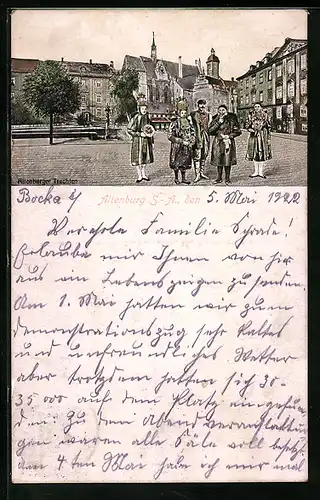 Altenburger Trachten
Bocka b/
Altenburg S.-A., den 5. Mai 1922
Verehrte Familie Schade!
Erlaube mir Ihnen von hir
aus ein Lebenszeigen zu senden.
Am 1. Mai hatten wir zum
demonstrationszug sehr kaltes
und unfreundliches Wetter
aber trotzdem hatten sich 30-
35000 auf dem Platz eingefun
den. Zu den Abend veranstaltun
gen waren alle Säle voll besetzt.
am 4ten Mai habe ich mir mal